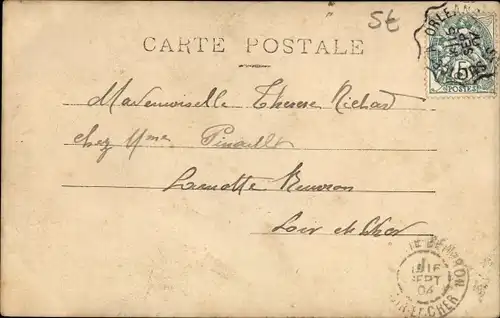 5E
CARTE POSTALE
ORLEANS
5
POSTES
Mademoiselle Therese Richard
chez Mme Pinault
Lamotte Beuvron
Loir et Cher
E BEUVRON
16
SEPT
04
LOIR-ET-CHER